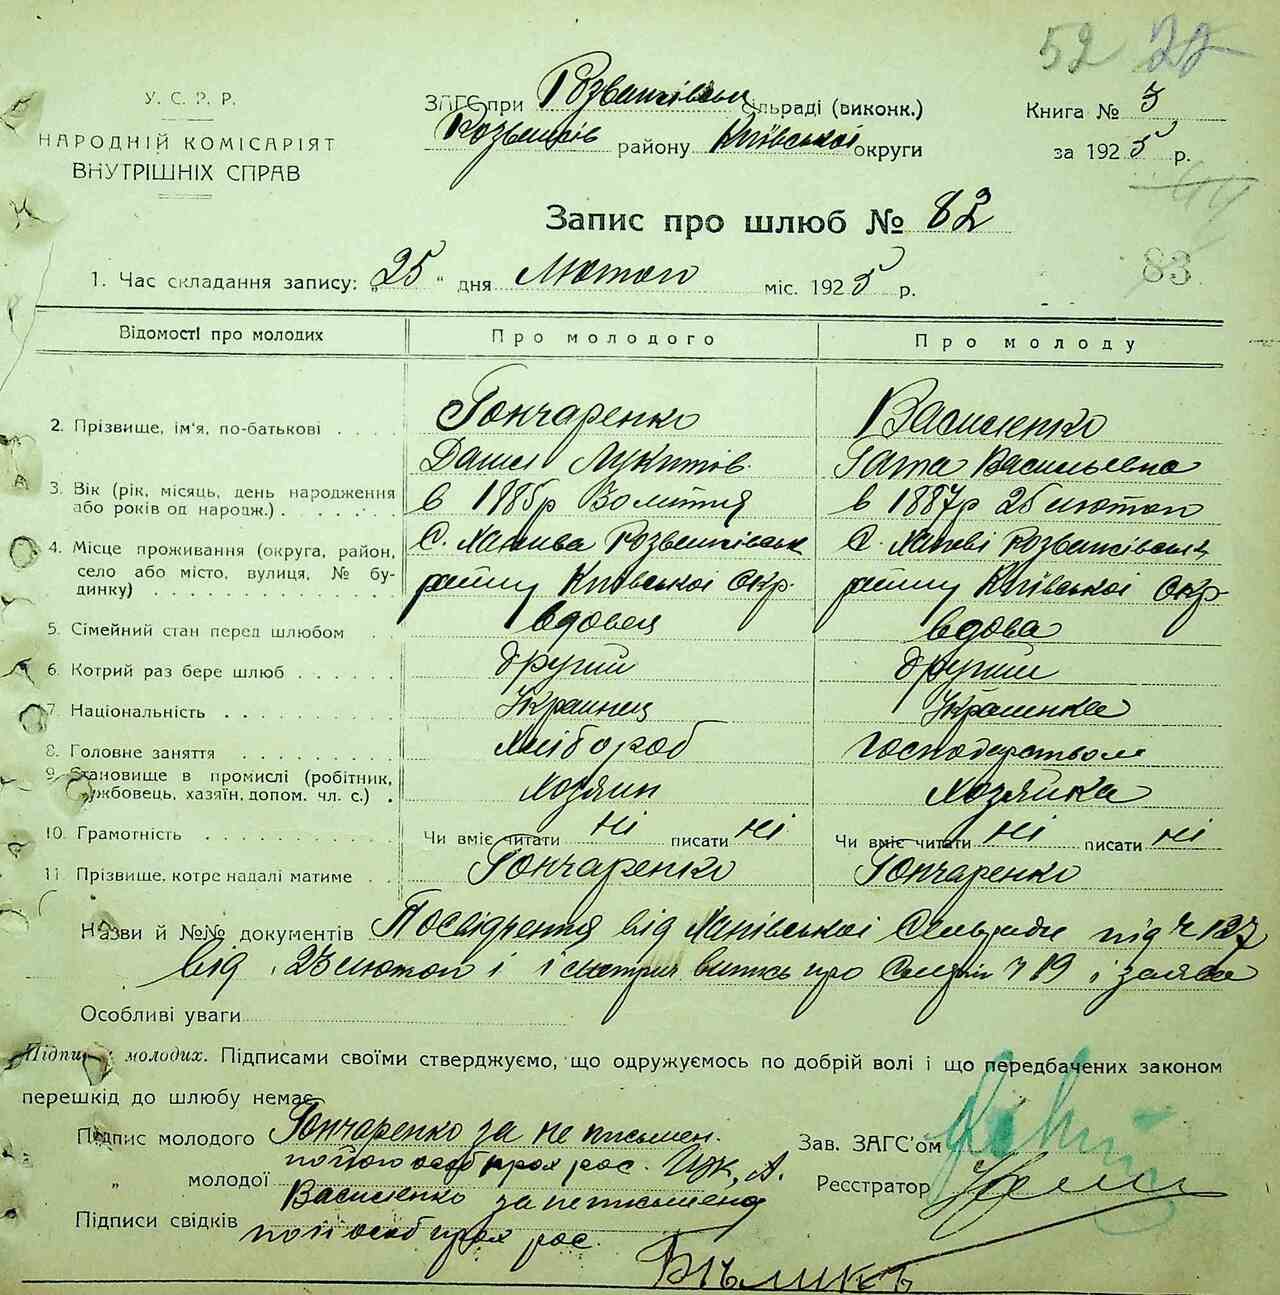 52 22
У. С. Р. Р.
НАРОДНІЙ КОМІСАРІЯТ
ВНУТРІШНІХ СПРАВ
ЗАГС при Розважівськ сільраді (виконк.)
Розважів району Київської округи
Книга № 3
за 1925 р.
44
Запис про шлюб № 82
83
1. Час складання запису: „25" дня Лютого міс. 1925 р.
Відомості про молодих
Про молодого
Про молоду
2. Прізвище, ім'я, по-батькові
Гончаренко
Василенко
Данил Лукитів
Гапа Васильевна
3. Вік (рік, місяць, день народження або років од народж.)
в 1885р
в 1887р 25 лютого
4. Місце проживання (округа, район, село або місто, вулиця, № будинку)
С. Розважівськ
С. Розважівськ
району Київської Окр.
району Київської Окр.
5. Сімейний стан перед шлюбом
вдовец
вдова
6. Котрий раз бере шлюб
другий
другий
7. Національність
Українец
Українка
8. Головне заняття
Хлібороб
господарством
9. Становище в промислі (робітник, службовець, хазяїн, допом. чл. с.)
Хозяин
Хозяйка
10. Грамотність
Чи вміє читати Ні писати Ні
Чи вміє читати Ні писати Ні
11. Прізвище, котре надалі матиме
Гончаренко
Гончаренко
Назви й №№ документів Посвідчення від Сельради під ч 127
від 23 лютого і витись про ч 19 і заява
Особливі уваги
Підписи молодих. Підписами своїми стверджуємо, що одружуємось по добрій волі і що передбачених законом
перешкід до шлюбу немає.
Підпис молодого Гончаренко за не письмен.
„ молодої
Василенко за неписьмену
Підписи свідків
Зав. ЗАГС'ом
Реєстратор